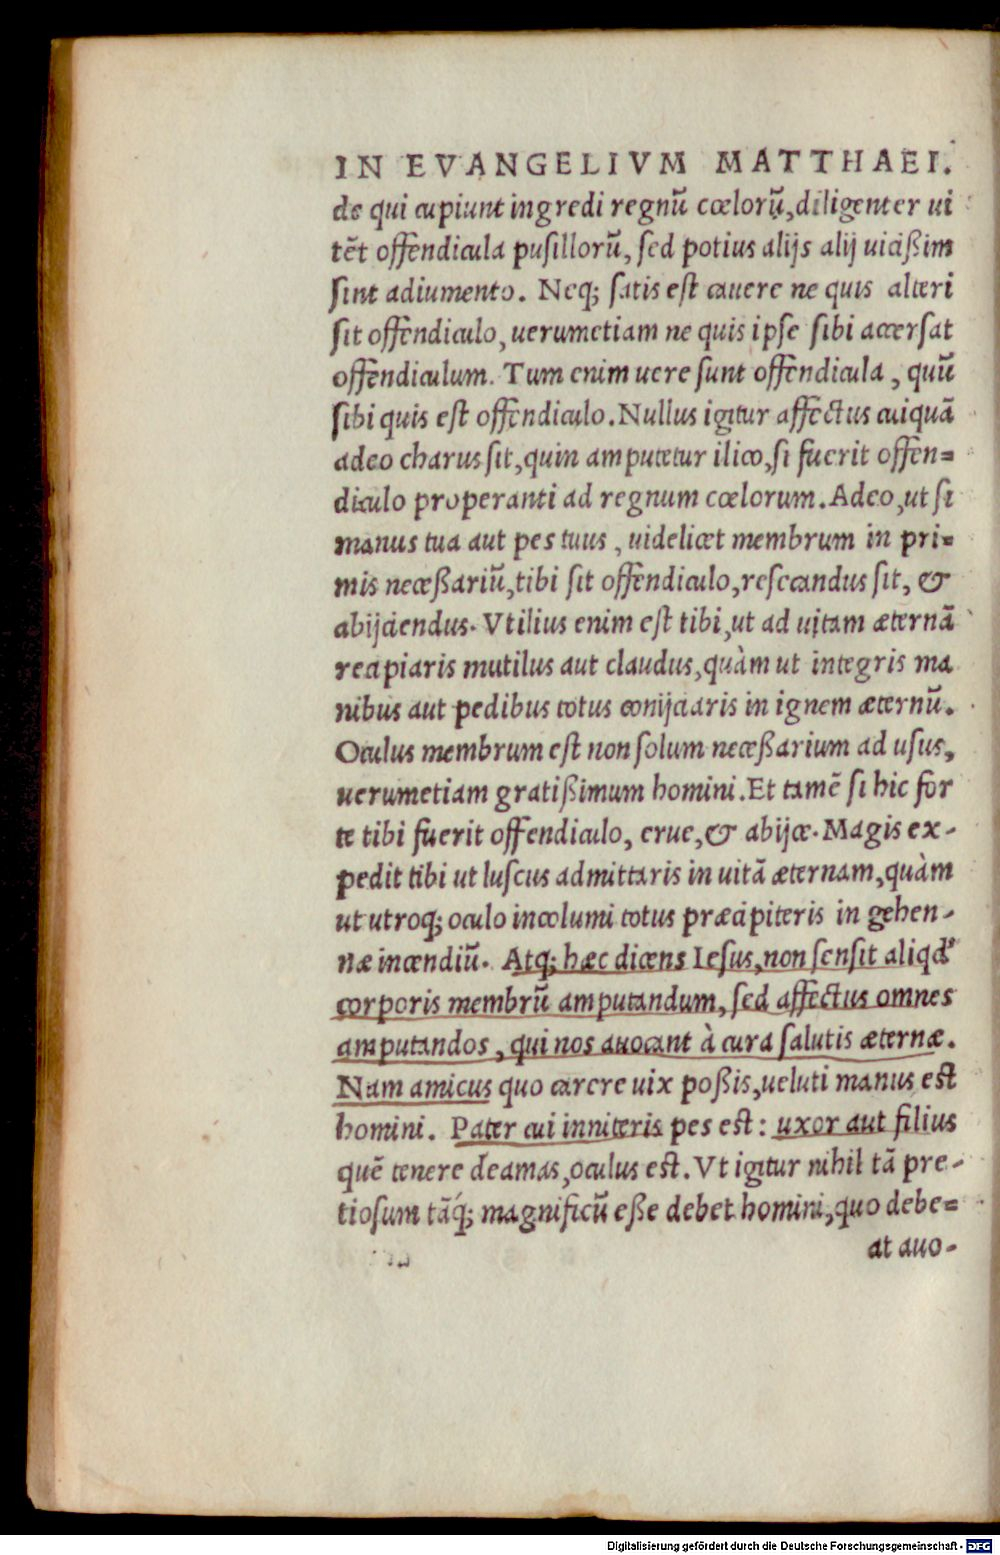 IN EVANGELIVM MATTHAEI.
de qui cupiunt ingredi regnũ cœlorũ, diligenter ui
tẽt offendicula pusillorũ, sed potius alijs alij uicißim
sint adiumento. Neq; satis est cauere ne quis alteri
sit offendiculo, uerumetiam ne quis ipse sibi accersat
offendiculum. Tum enim uere sunt offendicula, quũ
sibi quis est offendiculo. Nullus igitur affectus cuiquã
adeo charus sit, quin amputetur ilico, si fuerit offen=
diculo properanti ad regnum cœlorum. Adeo, ut si
manus tua aut pes tuus, uidelicet membrum in pri=
mis neceßariũ, tibi sit offendiculo, resecandus sit, &
abijciendus. Vtilius enim est tibi, ut ad uitam æternã
recipiaris mutilus aut claudus, quàm ut integris ma
nibus aut pedibus totus conijciaris in ignem æternũ.
Oculus membrum est non solum neceßarium ad usus,
uerumetiam gratißimum homini. Et tamẽ si hic for
te tibi fuerit offendiculo, erue, & abijce. Magis ex-
pedit tibi ut luscus admittaris in uitã æternam, quàm
ut utroq; oculo incolumi totus præcipiteris in gehen-
næ incendiũ. Atq; hæc dicens Iesus, non sensit aliqd'
corporis membrũ amputandum, sed affectus omnes
amputandos, qui nos auocant à cura salutis æternæ.
Nam amicus quo carere uix poßis, ueluti manus est
homini. Pater cui inniteris pes est: uxor aut filius
quẽ tenere deamas, oculus est. Vt igitur nihil tã pre-
tiosum tãq́; magnificũ eße debet homini, quo debe=
at auo-
Digitalisierung gefördert durch die Deutsche Forschungsgemeinschaft - DFG